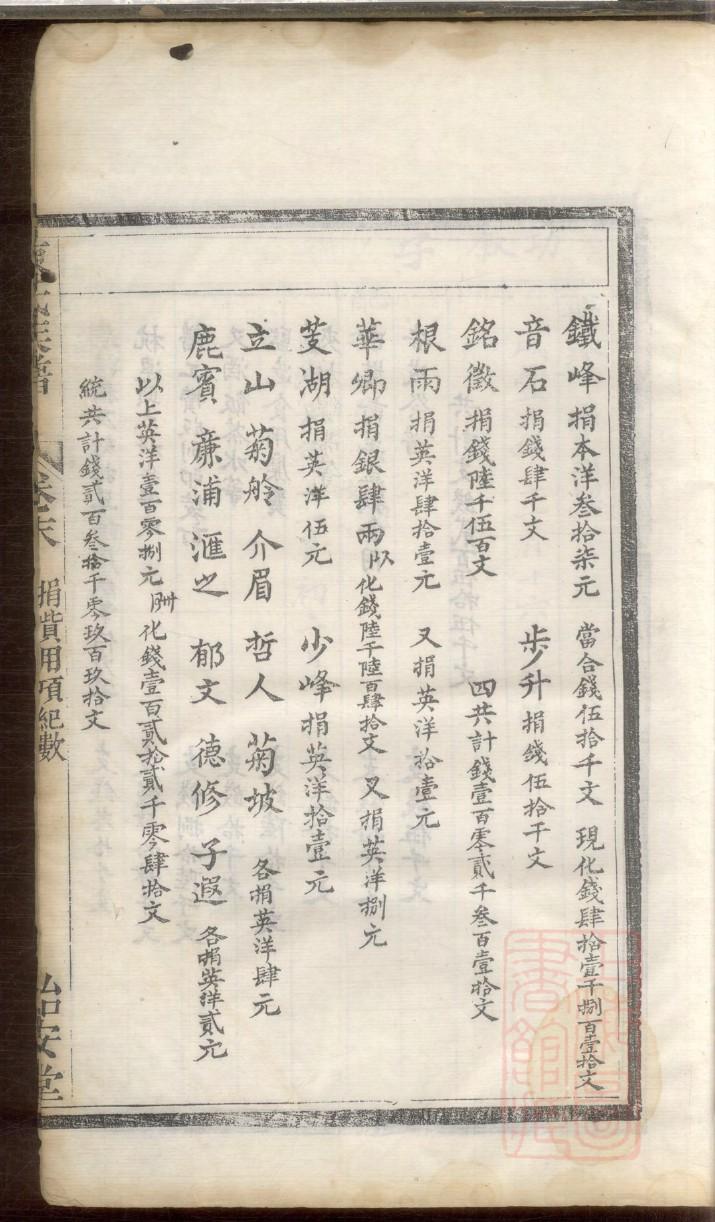 鐵峰捐本洋叁拾柒元 當合錢伍拾千文 現化錢肆拾壹千捌百壹拾文
音石捐錢肆千文 步升捐錢伍拾千文
銘徵捐錢陸千伍百文 四共計錢壹百零貳千叁百壹拾文
根雨捐英洋肆拾壹元 又捐英洋拾壹元
華卿捐銀肆兩以化錢陸千陸百肆拾文 又捐英洋捌元
芰湖捐英洋伍元 少峰捐英洋拾壹元
立山 菊舲 介眉 哲人 菊坡 各捐英洋肆元
鹿賓 廉浦 滙之 郁文 德修 子遐 各捐英洋貳元
以上英洋壹百零捌元 化錢壹百貳拾貳千零肆拾文
統共計錢貳百叁拾千零玖百玖拾文
卷末 捐費用項紀數